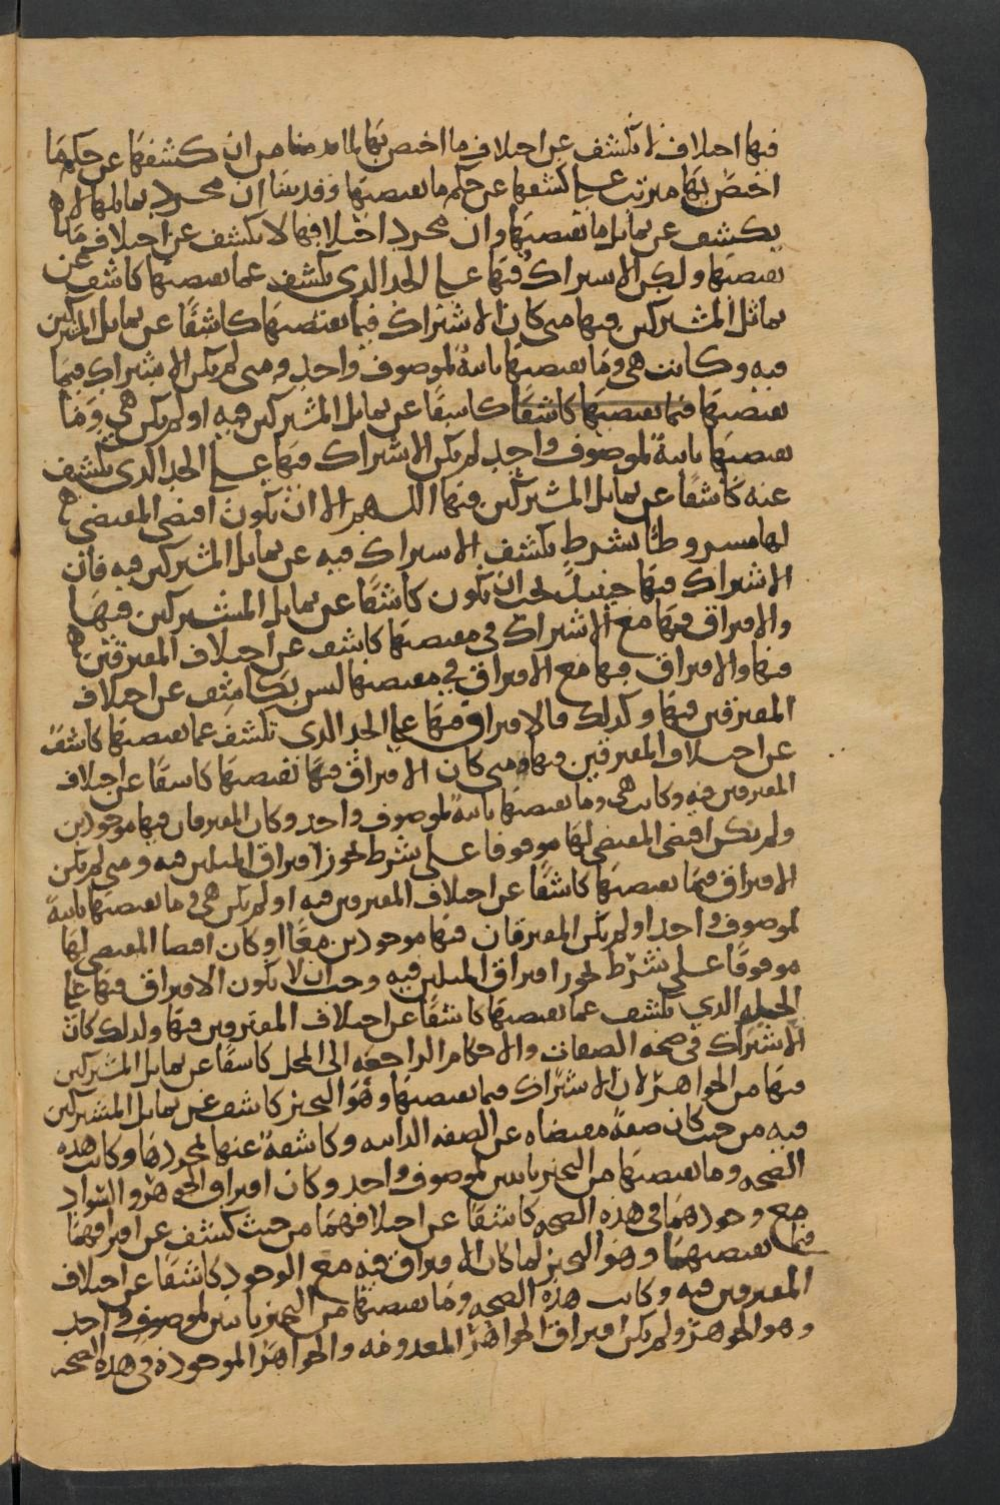 فيها اختلاف لا يكشف عن اختلاف ما اختص بها لما من ان كشفها عن حكم ما
اختص بها مترتب على كشفها عن حكم ما يقتضيها وقد بينا ان مجرد تماثلها لا
يكشف عن تماثل ما يقتضيها وان مجرد اختلافها لا يكشف عن اختلاف ما
يقتضيها ولكن الاشتراك فيها على الحد الذي يكشف عما يقتضيها كاشف عن
تماثل المشتركين فيها متى كان الاشتراك فيما يقتضيها كاشفًا عن تماثل المشتركين
فيه وكانت هي وما يقتضيها ثابتةً لموصوف واحدٍ ومتى لم يكن الاشتراك فيما
يقتضيها فيما يقتضيها كاشفًا كاشفًا عن تماثل المشتركين فيه او لم يكن هي وما
يقتضيها ثابتةً لموصوف واحد لم يكن الاشتراك فيها على الحد الذي يكشف
عنه كاشفًا عن تماثل المشتركين فيها اللهم الا ان يكون اقتضى المقتضي
لها مشروطًا بشرطٍ يكشف الاشتراك فيه عن تماثل المشتركين فيه فان
الاشتراك فيها حينئذٍ يجب ان يكون كاشفًا عن تماثل المشتركين فيها
والافتراق فيها مع الاشتراك في مقتضيها كاشف عن اختلاف المفترقين
فيها والافتراق فيها مع الافتراق في مقتضيها ليس بكاشف عن اختلاف
المفترقين فيها وكذلك فالافتراق فيها على الحد الذي تكشف عما يقتضيها كاشفٌ
عن اختلاف المفترقين فيها ومتى كان الافتراق فيها يقتضيها كاشفًا عن اختلاف
المفترقين فيه وكانت هي وما يقتضيها ثابتةً لموصوف واحد وكان المفترقان فيها موجودين
ولم يكن اقتضى المقتضي لها موقوفا على شرط يجوز افتراق المثلين فيه ومتى لم يكن
الافتراق فيما يقتضيها كاشفًا عن اختلاف المفترقين فيه او لم يكن هي وما يقتضيها ثابتةً
لموصوف واحد او لم يكن المفترقان فيها موجودين معًا او كان اقتضا المقتضي لها
موقوفًا على شرط يجوز افتراق المثلين فيه وجب ان لا يكون الافتراق فيها على
الجملة الذي يكشف عما يقتضيها كاشفًا عن اختلاف المفترقين فيها ولذلك كان
الاشتراك في صحة الصفات والاحكام الراجعة الى المحل كاشفًا عن تماثل المشتركين
فيها من الجواهر لان الاشتراك فيما يقتضيها وهو التحيز كاشف عن تماثل المشتركين
فيه من حيث كان صفةً مقتضاه عن الصفه الذاتيه وكاشفةً عنها لمجردها وكانت هذه
الصحه وما يقتضيها من التحيز ثابتين لموصوف واحد وكان افتراق الجوهر والسواد
مع وجودهما في هذه الصحه كاشفًا عن اختلافهما من حيث كشف عن افتراقهما
فيما يقتضيهما وهو التحيز لما كان الافتراق فيه مع الوجود كاشفًا عن اختلاف
المفترقين فيه وكانت هذه الصحه وما يقتضيها من التحيز ثابتين لموصوف واحد
وهو الجوهر ولم يكن افتراق الجواهر المعدومه والجواهر الموجودة في هذه الصحه